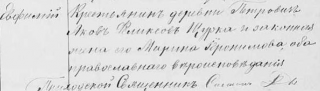 Евфимій Крестьянинъ деревни Петровичъ
Яковъ Климовъ Щурка и законная
жена его Марина Трофимова, оба
православнаго вѣроисповѣданія
Приходскій Священникъ